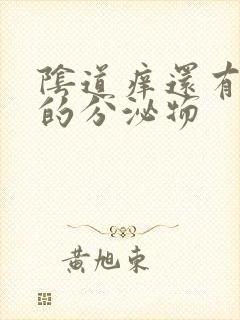 陰道痒還有
的分泌物
黃旭東